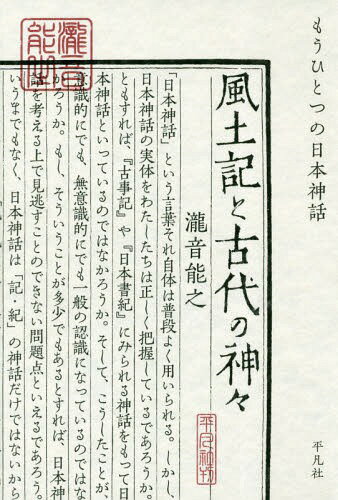 もうひとつの日本神話
風土記と古代の神々
瀧音能之
平凡社
「日本神話」という言葉それ自体は普段よく用いられる。しかし、
日本神話の実体をわたしたちは正しく把握しているであろうか。
ともすれば、『古事記』や『日本書紀』にみられる神話をもって日
本神話といっているのではなかろうか。そして、こうしたことが、
意識的にでも、無意識的にでも一般の認識になっているのではな
かろうか。もし、そういうことが多少でもあるとすれば、日本神
話を考える上で見逃すことのできない問題点といえるであろう。
いうまでもなく、日本神話は「記・紀」の神話だけではないから
瀧音能之